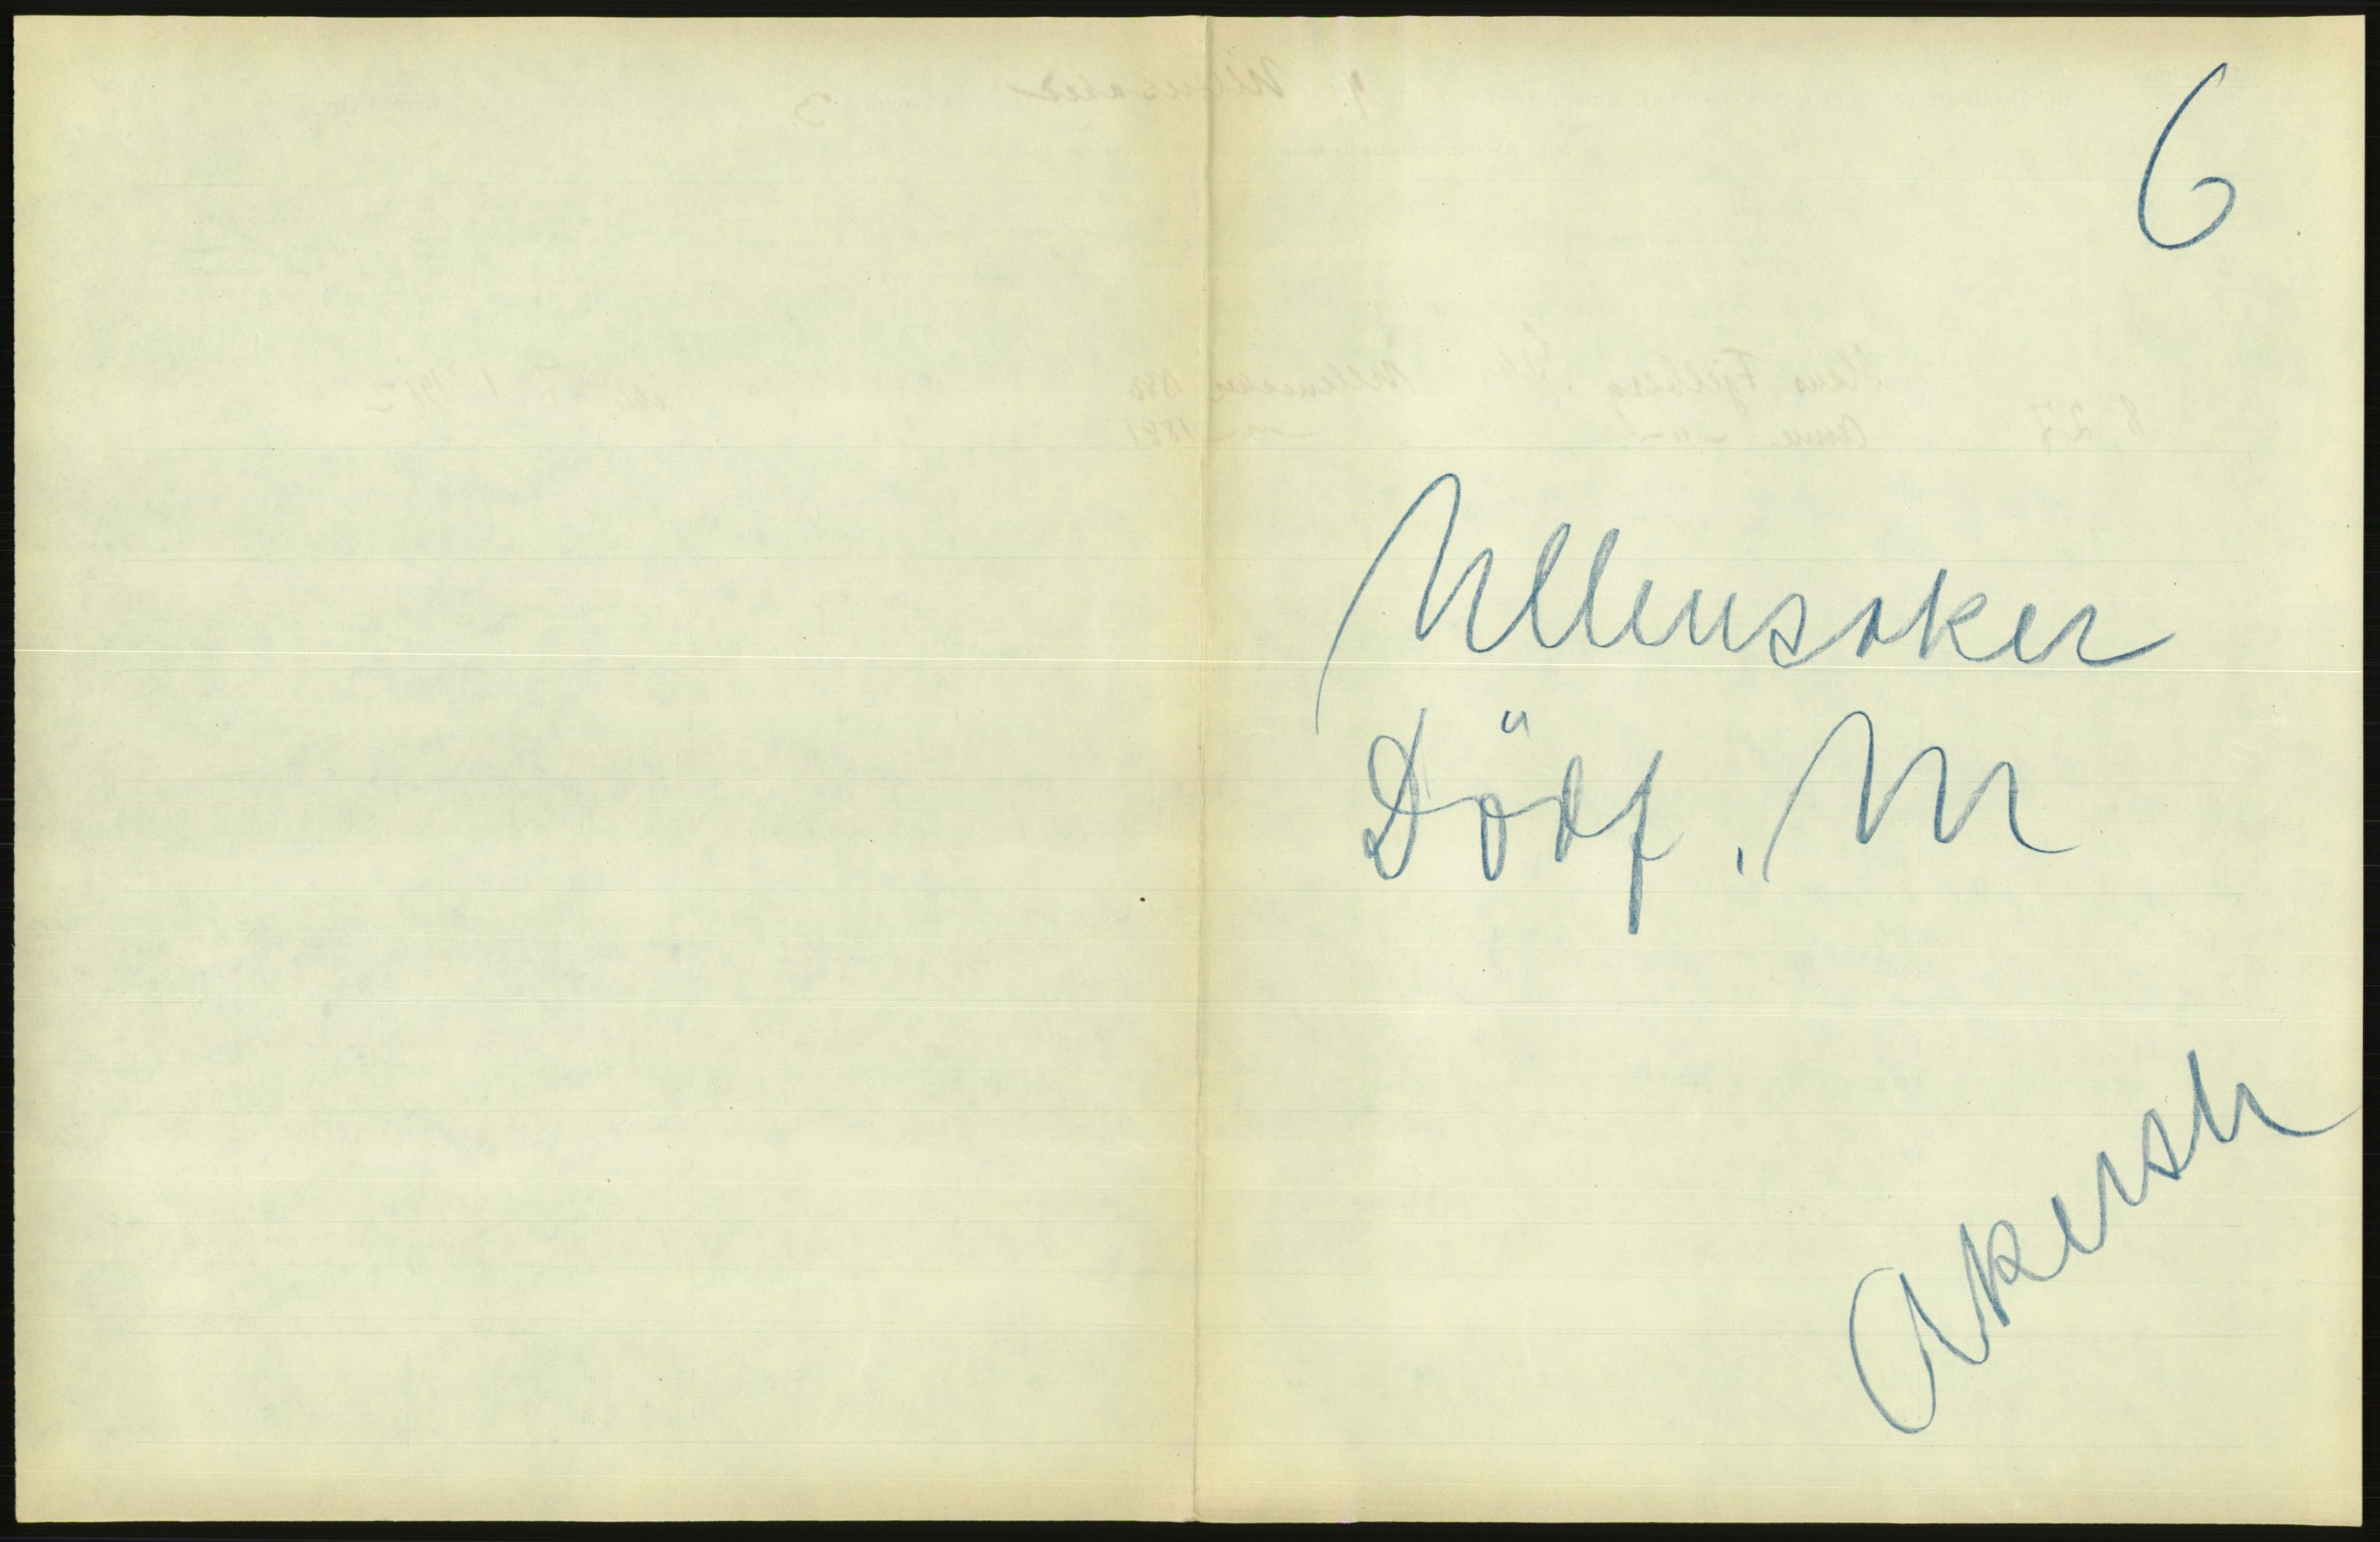 6
Ullensaker
Dödf. M
Akersh